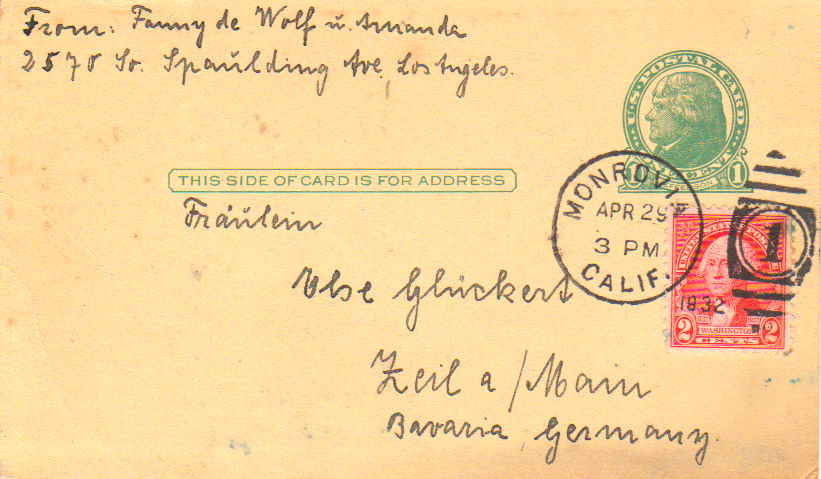 From: Fanny de Wolf u. Amanda
2570 So. Spaulding Ave, Los Angeles.
U.S. POSTAL CARD
1 1
THIS SIDE OF CARD IS FOR ADDRESS
MONROVIA
APR 29
3 PM
CALIF.
1932
1
UNITED STATES POSTAGE
WASHINGTON
2 CENTS 2
Fräulein
Else Glückert
Zeil a/Main
Bavaria Germany.